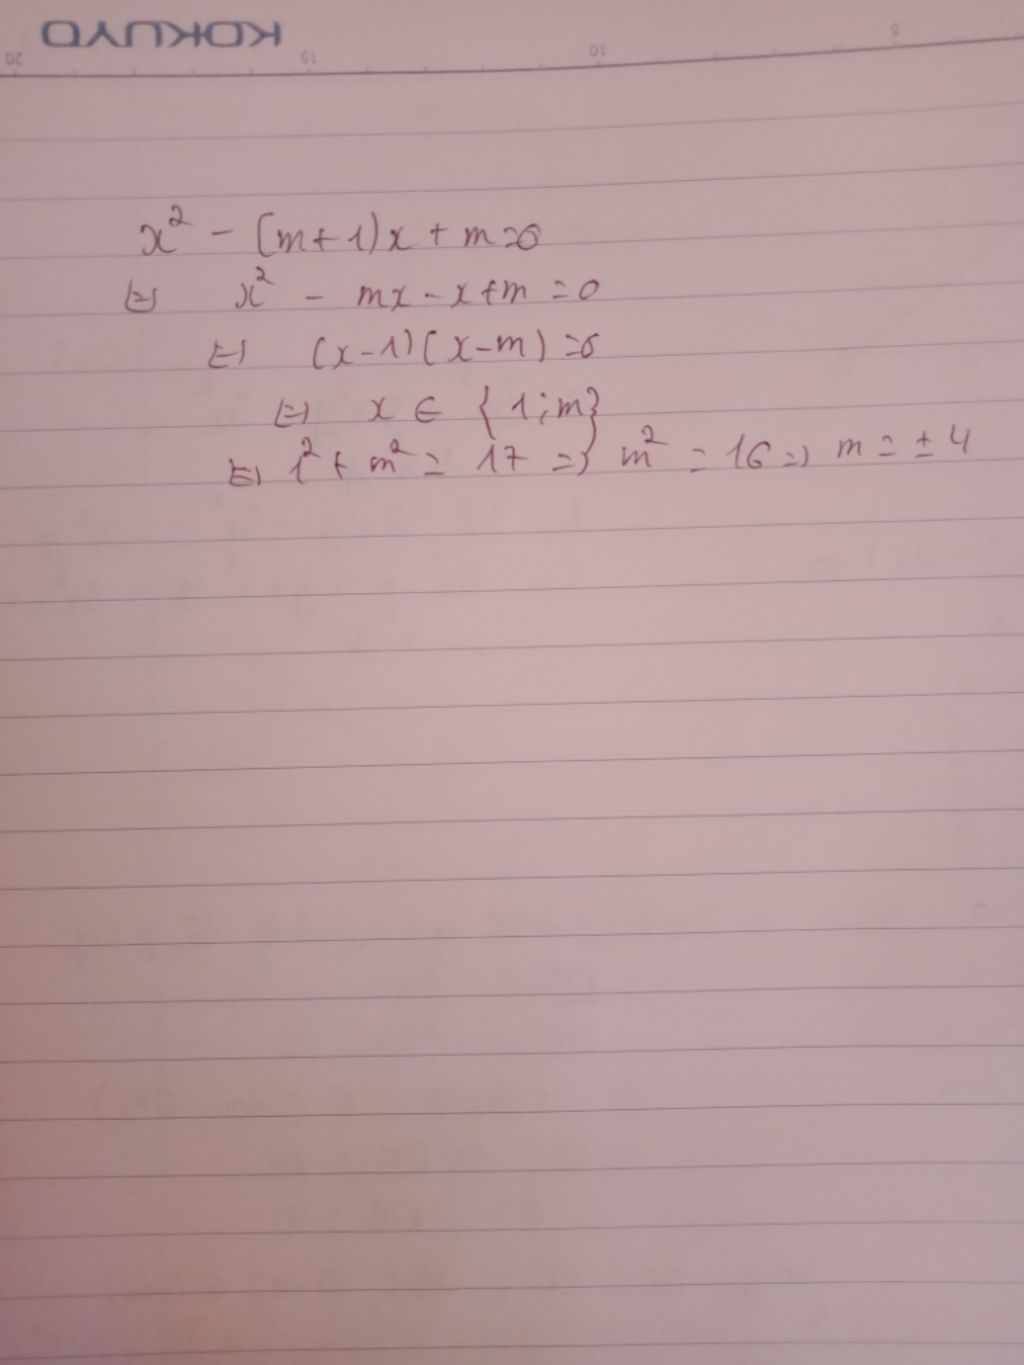 KOKUYO
5 10 15 20
x² - (m+1)x + m = 0
⇔ x² - mx - x + m = 0
⇔ (x-1)(x-m) = 0
⇔ x ∈ {1;m}
⇔ 1² + m² = 17 => m² = 16 => m = ± 4